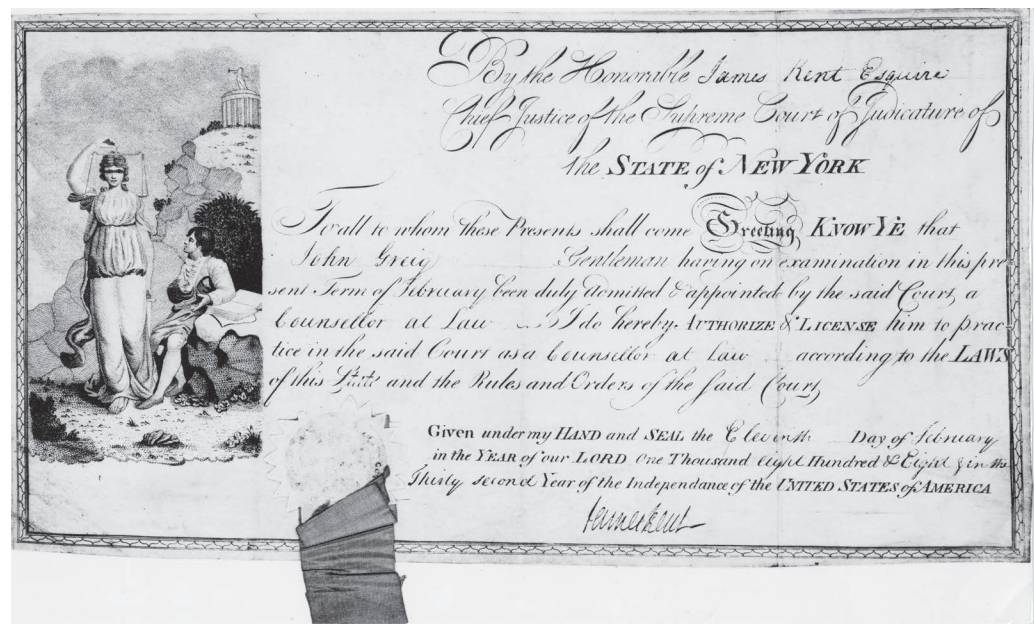 By the Honorable James Kent Esquire
Chief Justice of the Supreme Court of Judicature of
the STATE of NEW YORK
To all to whom these Presents shall come Greeting KNOW YE that
John Greig Gentleman having on examination in this pre-
sent Term of February been duly admitted & appointed by the said Court, a
Counsellor at Law I do hereby AUTHORIZE & LICENSE him to prac-
tice in the said Court as a Counsellor at Law according to the LAWS
of this State and the Rules and Orders of the said Court,
Given under my HAND and SEAL the Eleventh Day of February
in the YEAR of our LORD One Thousand eight Hundred & Eight & in the
Thirty second Year of the Independance of the UNITED STATES of AMERICA
James Kent